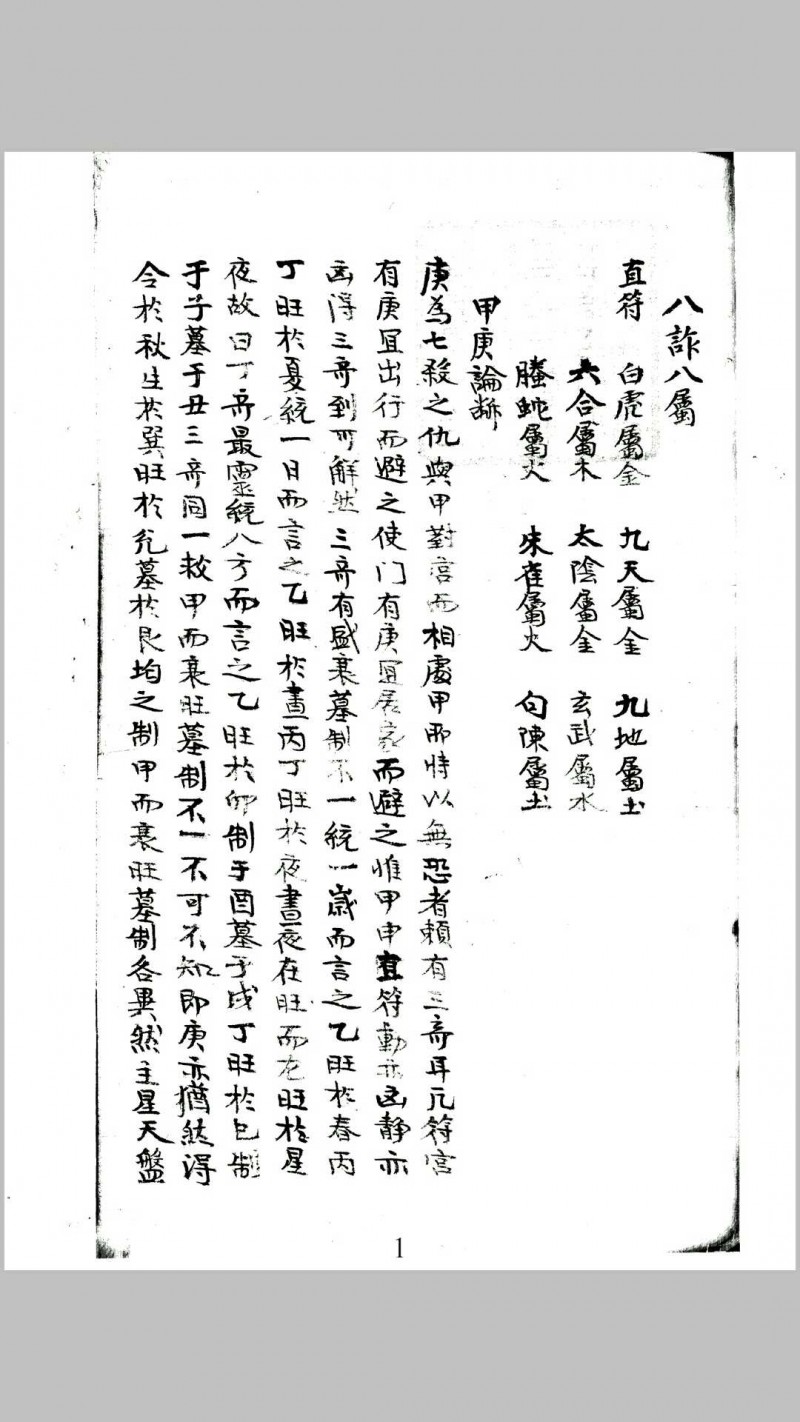 八詐八屬
直符 白虎屬金 九天屬金 九地屬土
六合屬木 太陰屬金 玄武屬水
螣蛇屬火 朱雀屬火 勾陳屬土
甲庚論斷
庚為七殺之仇與甲對宮而相處甲所恃以無恐者賴有三奇耳凡符宮
有庚宜出行而避之使门有庚宜居家而避之惟甲申直符動亦凶静亦
凶得三奇到可解然三奇有盛衰墓制不一統一歲而言之乙旺於春丙
丁旺於夏統一日而言之乙旺於晝丙丁旺於夜晝夜在旺而尤旺於星
夜故曰丁奇最靈統八方而言之乙旺於卯制于酉墓于戌丁旺於巳制
于子墓于丑三奇同一救甲而衰旺墓制不一不可不知即庚亦猶然得
令於秋生於巽旺於兊墓於艮均之制甲而衰旺墓制各異然主星天盤
1